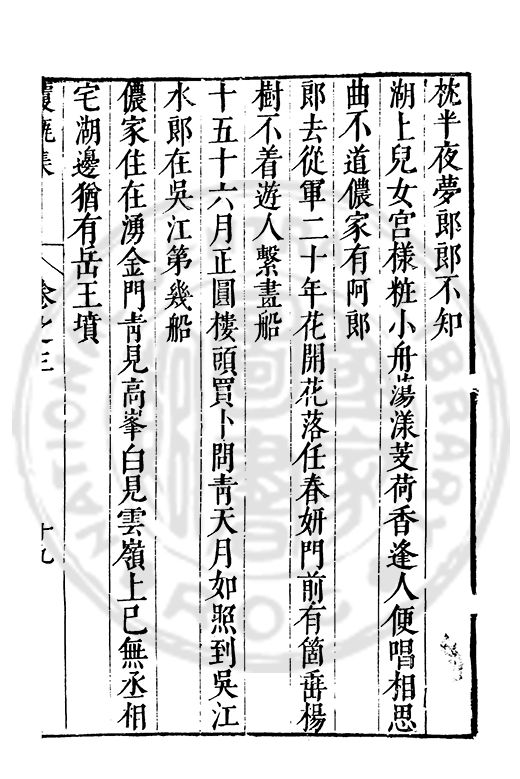 枕半夜夢郎郎不知
湖上兒女宫樣粧小舟蕩漾芰荷香逢人便唱相思
曲不道儂家有阿郎
郎去從軍二十年花開花落任春妍門前有箇垂楊
樹不着遊人繫畫船
十五十六月正圓樓頭買卜問青天月如照到吳江
水郎在吳江第幾船
儂家住在湧金門青見高峯白見雲嶺上巳無丞相
宅湖邊猶有岳王墳
卷之三
十九